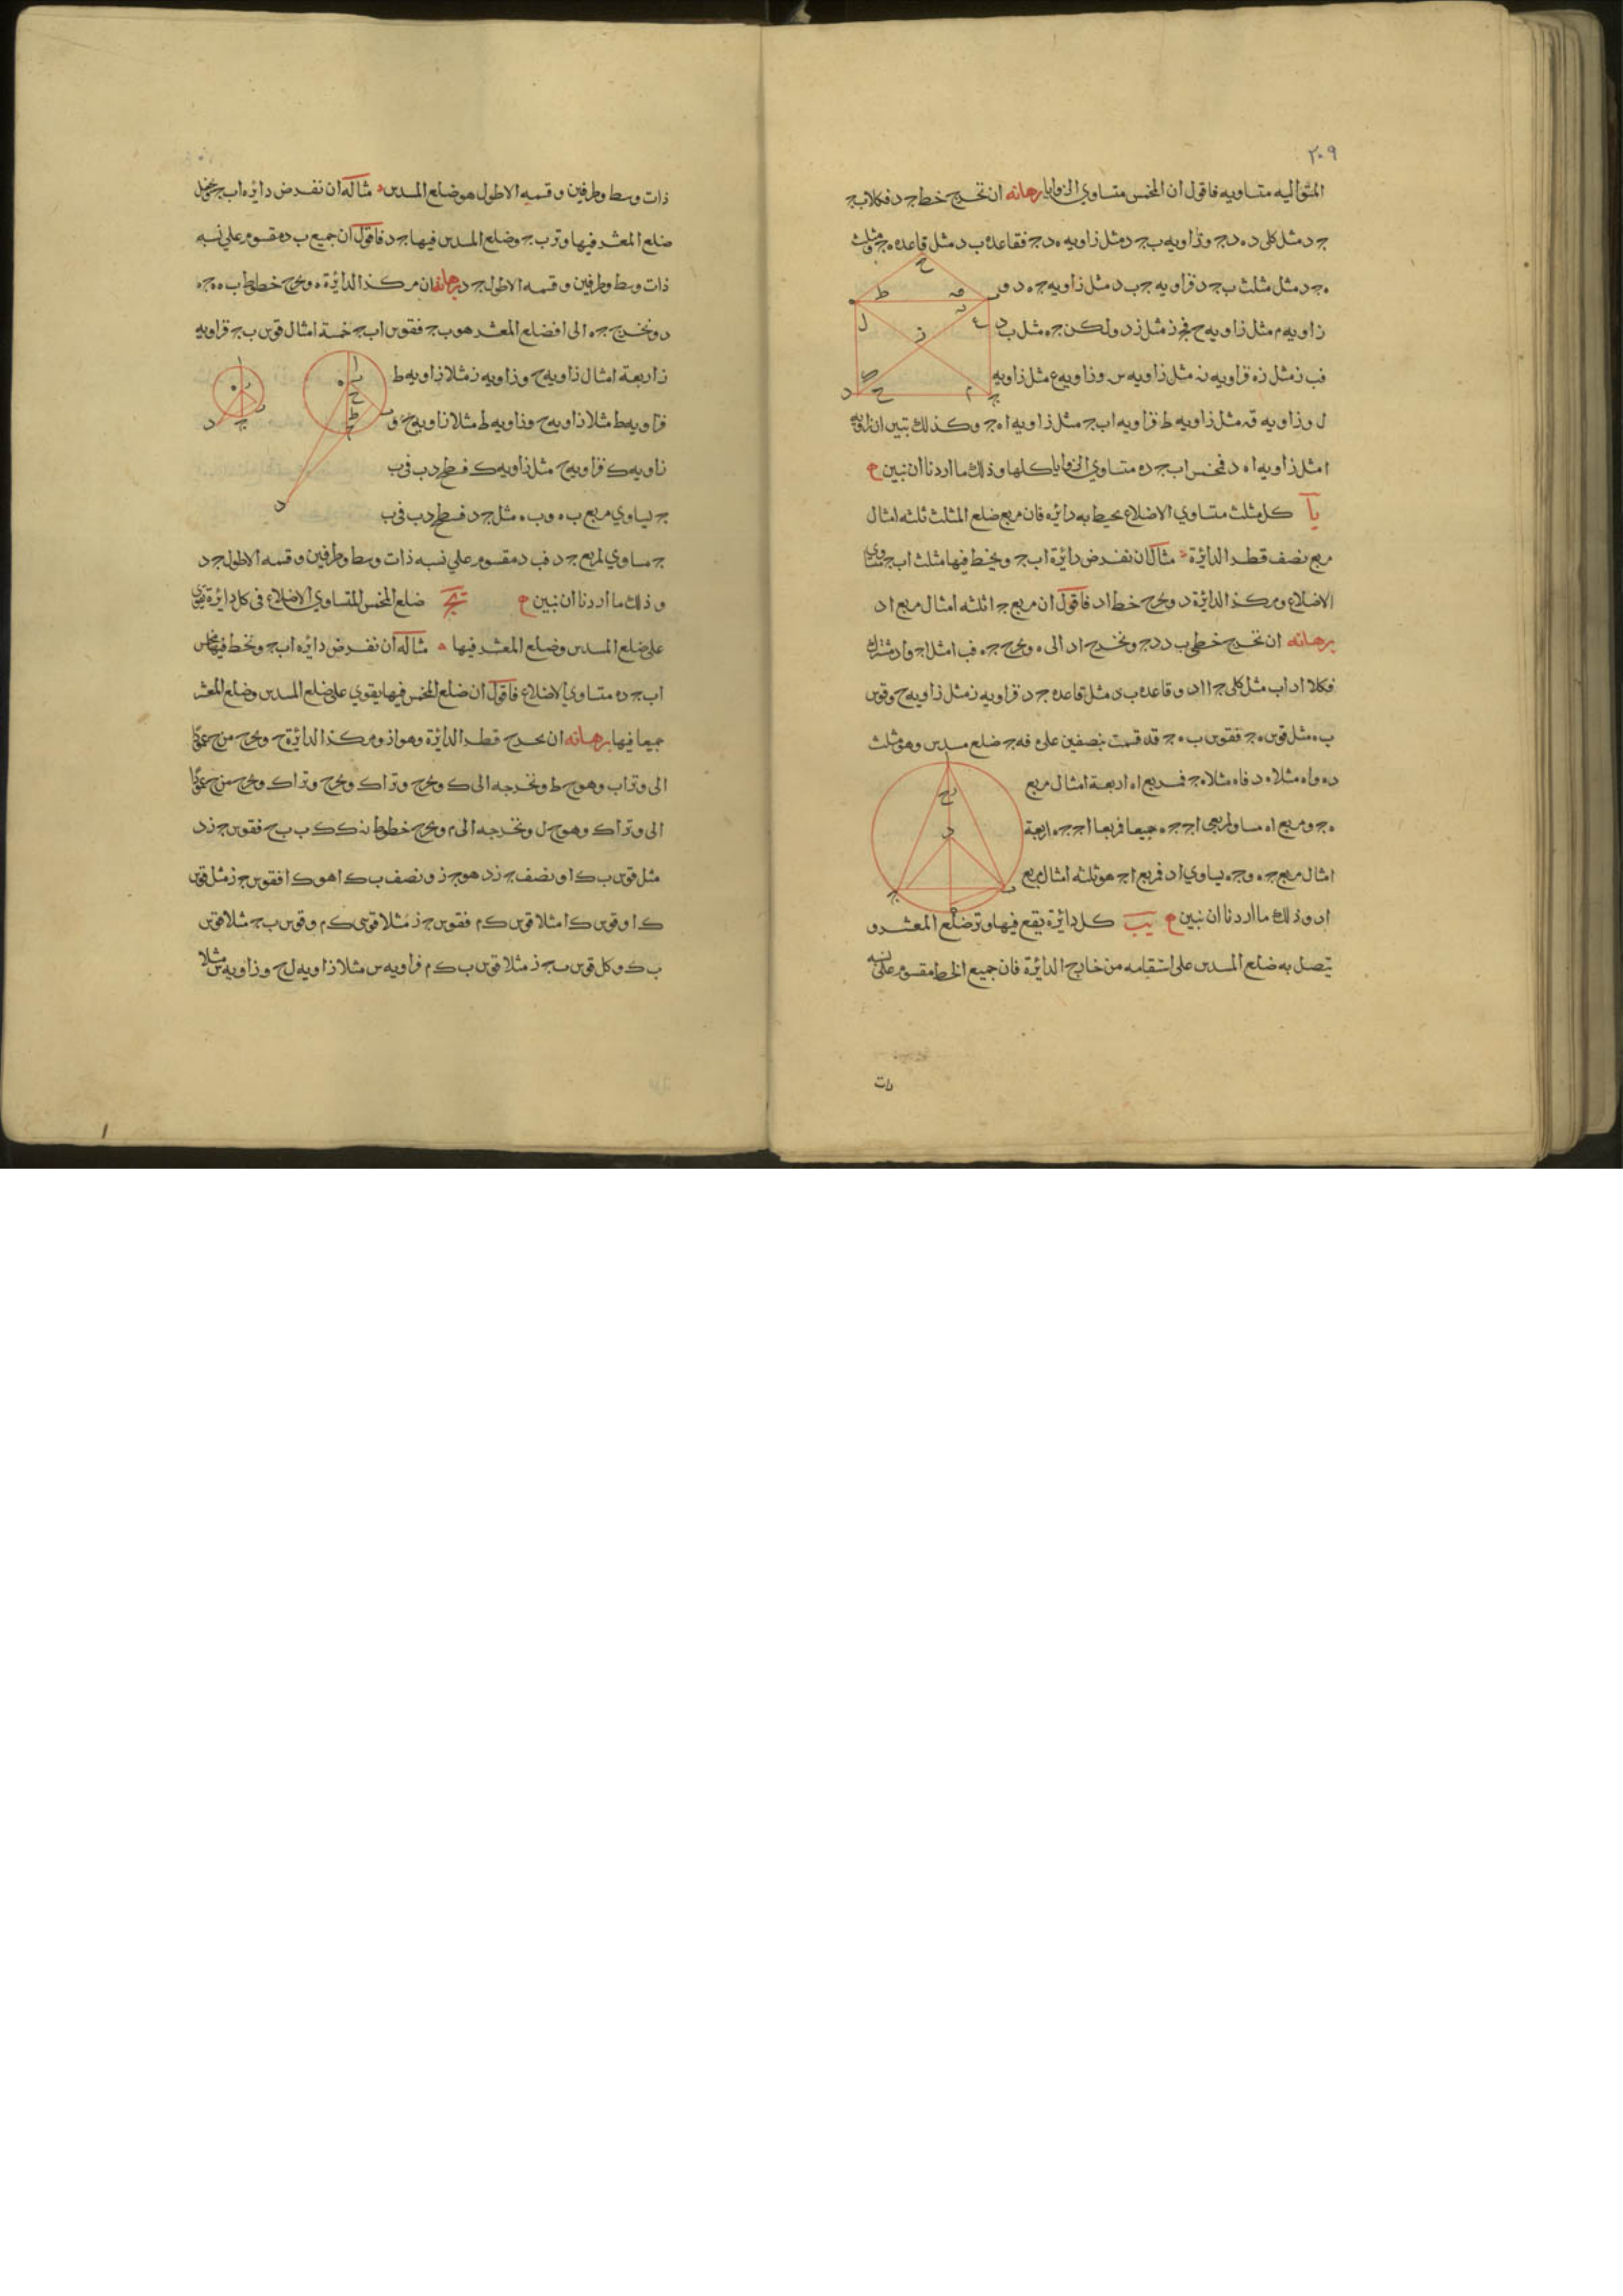 ٢٠٩
المتواليه متساويه فاقول ان المخمس متساوي الزوايا برهانه ان نخرج خط جـ د فكلا ب جـ
جـ د مثل كلى د ه د جـ وزاويه ب جـ د مثل زاويه ه د جـ فقاعدة ب د مثل قاعده ه جـ ومثلث
ه جـ د مثل مثلث ب جـ د فزاويه جـ ب د مثل زاويه جـ ه د و
زاويه م مثل زاويه ح فجـ ز مثل ز د ولكن جـ ه مثل ب د
فب ز مثل ز ه فزاويه نه مثل زاويه س وزاويه ع مثل زاويه
ل وزاويه قه مثل زاويه ط فزاويه اب جـ مثل زاويه ا ه جـ وكذلك نتبين ان زاويه
ا مثل زاويه ا ه د فمخمس اب جـ د ه متساوي الزوايا كلها وذلك ما اردنا ان نبين
يا كل مثلث متساوي الاضلاع يحيط به دائره فان مربع ضلع المثلث ثلثه امثال
مربع نصف قطر الدائرة مثاله ان نفرض دائرة اب جـ ويخط فيها مثلث اب جـ متساوي
الاضلاع ومركز الدائرة د ونخرج خط ا د فاقول ان مربع جـ ا ثلثه امثال مربع ا د
برهانه ان نخرج خطي ب د د جـ ونخرج ا د الى ه ونخرج جـ ه فب ا مثل ا جـ وا د مشترك
فكلا ا د اب مثل كلى جـ ا ا د وقاعدة ب د مثل قاعدة جـ د فزاويه ز مثل زاويه ح وقوس
ب ه مثل قوس ه جـ فقوس ب ه جـ قد قسمت بنصفين على ه فه جـ ضلع مسدس وهو مثلث
د ه وا ه مثلا ه د فا ه مثلا ه جـ فمربع ا ه اربعة امثال مربع
ه جـ ومربع ا ه مساو لمربعي ا جـ جـ ه جميعا فمربعا ا جـ جـ ه اربعة
امثال مربع جـ ه وجـ ه يساوي ا د فمربع ا جـ هو ثلثه امثال مربع
ا د وذلك ما اردنا ان نبين يب كل دائرة يقع فيها وتر ضلع المعشر و
يتصل به ضلع المسدس على استقامه من خارج الدائرة فان جميع الخط مقسوم على نسبه
ذات
ذات وسط وطرفين وقسمه الاطول هو ضلع المسدس مثاله ان نفرض دائره اب جـ
ضلع المعشر فيها وتر ب جـ وضلع المسدس فيها جـ د فاقول ان جميع ب د مقسوم على نسبه
ذات وسط وطرفين وقسمه الاطول جـ د برهانه ان مركز الدائرة ه ونخرج خطوط ب ه ه جـ ه
د ونخرج جـ ه الى ا فضلع المعشر هو ب جـ فقوس اب جـ خمسة امثال قوس ب جـ فزاويه
ز اربعة امثال زاويه ح وزاويه ز مثلا زاويه ط
فزاويه ط مثلا زاويه ح وزاويه ط مثلا زاويه ح و
زاويه ك فزاويه ح مثل زاويه ك فسطح د ب فى ب
جـ يساوي مربع ب ه وب ه مثل جـ د فسطح د ب فى ب
جـ مساوي لمربع جـ د فب د مقسوم على نسبه ذات وسط وطرفين وقسمه الاطول جـ د
وذلك ما اردنا ان نبين يجـ ضلع المخمس المتساوي الاضلاع فى كل دائرة يقوي
على ضلع المسدس وضلع المعشر فيها مثاله ان نفرض دائره اب جـ ونخط فيها مخمس
اب جـ د ه متساوي الاضلاع فاقول ان ضلع المخمس فيها يقوي على ضلع المسدس وضلع المعشر
جميعا فيها برهانه ان نخرج قطر الدائرة وهو ا ز ومركز الدائرة ح ونخرج من ح عمودا
الى وتر اب وهو ح ط ونخرجه الى ك ونخرج وتر ا ك ونخرج وتر ا ك ونخرج من ح عمودا
الى وتر ا ك وهو ح ل ونخرجه الى م ونخرج خطوط نه ك ك ب ب ح فقوس جـ ز د
مثل قوس ب ك ا ونصف جـ ز د هو جـ ز ونصف ب ك ا هو ك ا فقوس جـ ز مثل قوس
ك ا وقوس ك ا مثلا قوس ك م فقوس جـ ز مثلا قوس ك م وقوس ب جـ مثلا قوس
ب ك وكل قوس ب جـ ز مثلا قوس ب ك م فزاويه س مثلا زاويه ل ح وزاويه س مثلا